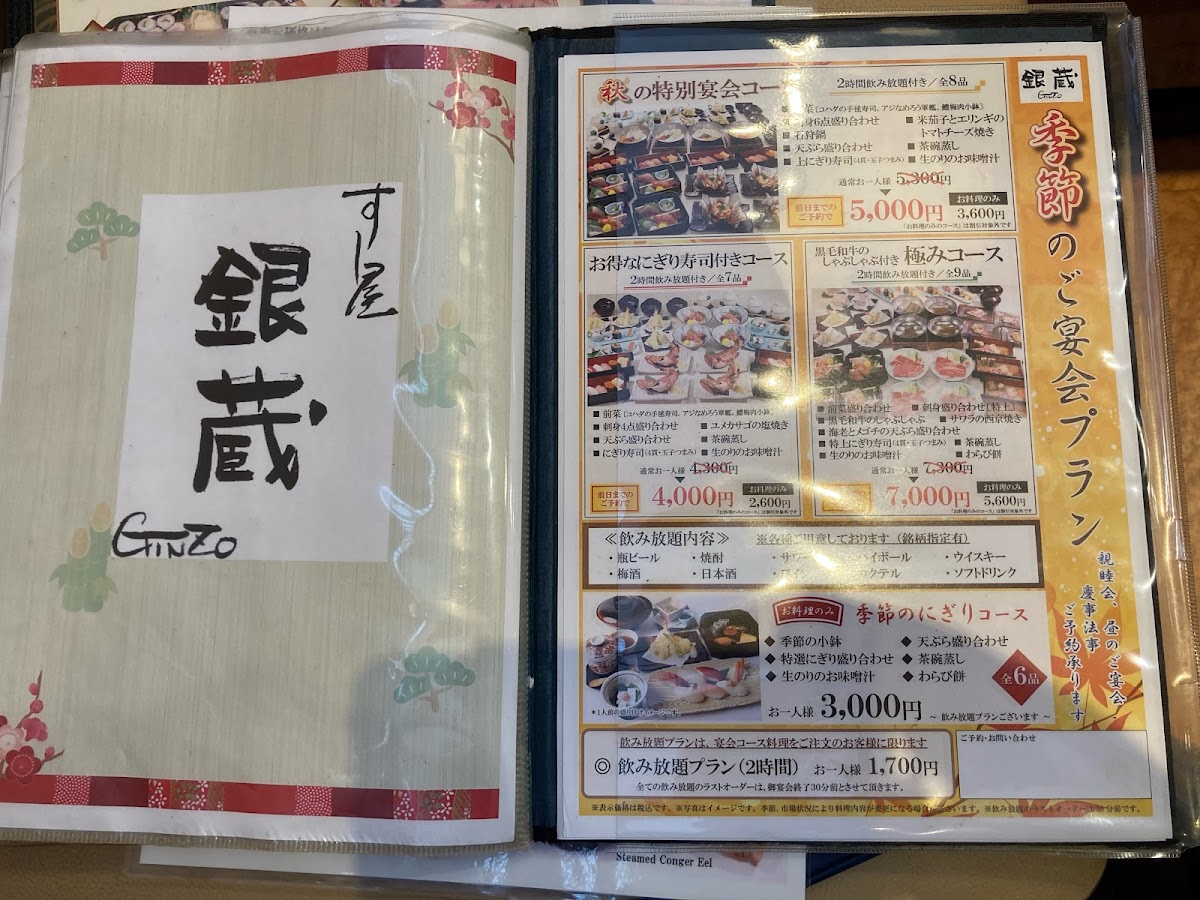 すし屋
銀蔵
GINZO
銀蔵
GINZO
季節のご宴会プラン
親睦会、昼のご宴会
慶事法事
ご予約承ります
秋の特別宴会コー
2時間飲み放題付き/全8品
菜〔コハダの手毬寿司、アジなめろう軍艦、鱧梅肉小鉢〕
身6点盛り合わせ
■ 石狩鍋
■ 天ぷら盛り合わせ
■ 上にぎり寿司(4貫・玉子つまみ)
■ 米茄子とエリンギの
トマトチーズ焼き
■ 茶碗蒸し
■ 生のりのお味噌汁
通常お一人様 5,300円
前日までの
ご予約で
5,000円
お料理のみ
3,600円
「お料理のみのコース」は割引対象外です
お得なにぎり寿司付きコース
2時間飲み放題付き/全7品
■ 前菜〔コハダの手毬寿司、アジなめろう軍艦、鱧梅肉小鉢〕
■ 刺身4点盛り合わせ
■ ユメカサゴの塩焼き
■ 天ぷら盛り合わせ
■ 茶碗蒸し
■ にぎり寿司(4貫・玉子つまみ)
■ 生のりのお味噌汁
通常お一人様 4,300円
前日までの
ご予約で
4,000円
お料理のみ
2,600円
「お料理のみのコース」は割引対象外です
黒毛和牛の
しゃぶしゃぶ付き 極みコース
2時間飲み放題付き/全9品
■ 前菜盛り合わせ
■ 刺身盛り合わせ〔特上〕
■ 黒毛和牛のしゃぶしゃぶ
■ サワラの西京焼き
■ 海老とメゴチの天ぷら盛り合わせ
■ 特上にぎり寿司(4貫・玉子つまみ)
■ 茶碗蒸し
■ 生のりのお味噌汁
■ わらび餅
通常お一人様 7,300円
7,000円
お料理のみ
5,600円
「お料理のみのコース」は割引対象外です
≪飲み放題内容≫ ※各種ご用意しております(銘柄指定有)
・瓶ビール ・焼酎 ・サワー ハイボール ・ウイスキー
・梅酒 ・日本酒 クテル ・ソフトドリンク
お料理のみ 季節のにぎりコース
◆ 季節の小鉢
◆ 天ぷら盛り合わせ
◆ 特選にぎり盛り合わせ
◆ 茶碗蒸し
◆ 生のりのお味噌汁
◆ わらび餅
全6品
*1人前の盛り付けイメージです。
お一人様 3,000円 ~ 飲み放題プランございます ~
飲み放題プランは、宴会コース料理をご注文のお客様に限ります
◎ 飲み放題プラン(2時間) お一人様 1,700円
全ての飲み放題のラストオーダーは、御宴会終了30分前とさせて頂きます。
ご予約・お問い合わせ
※表示価格は税込です。※写真はイメージです。季節、市場状況により料理内容が変更になる場合がございます。※飲み放題のラストオーダーは30分前です。
Steamed Conger Eel